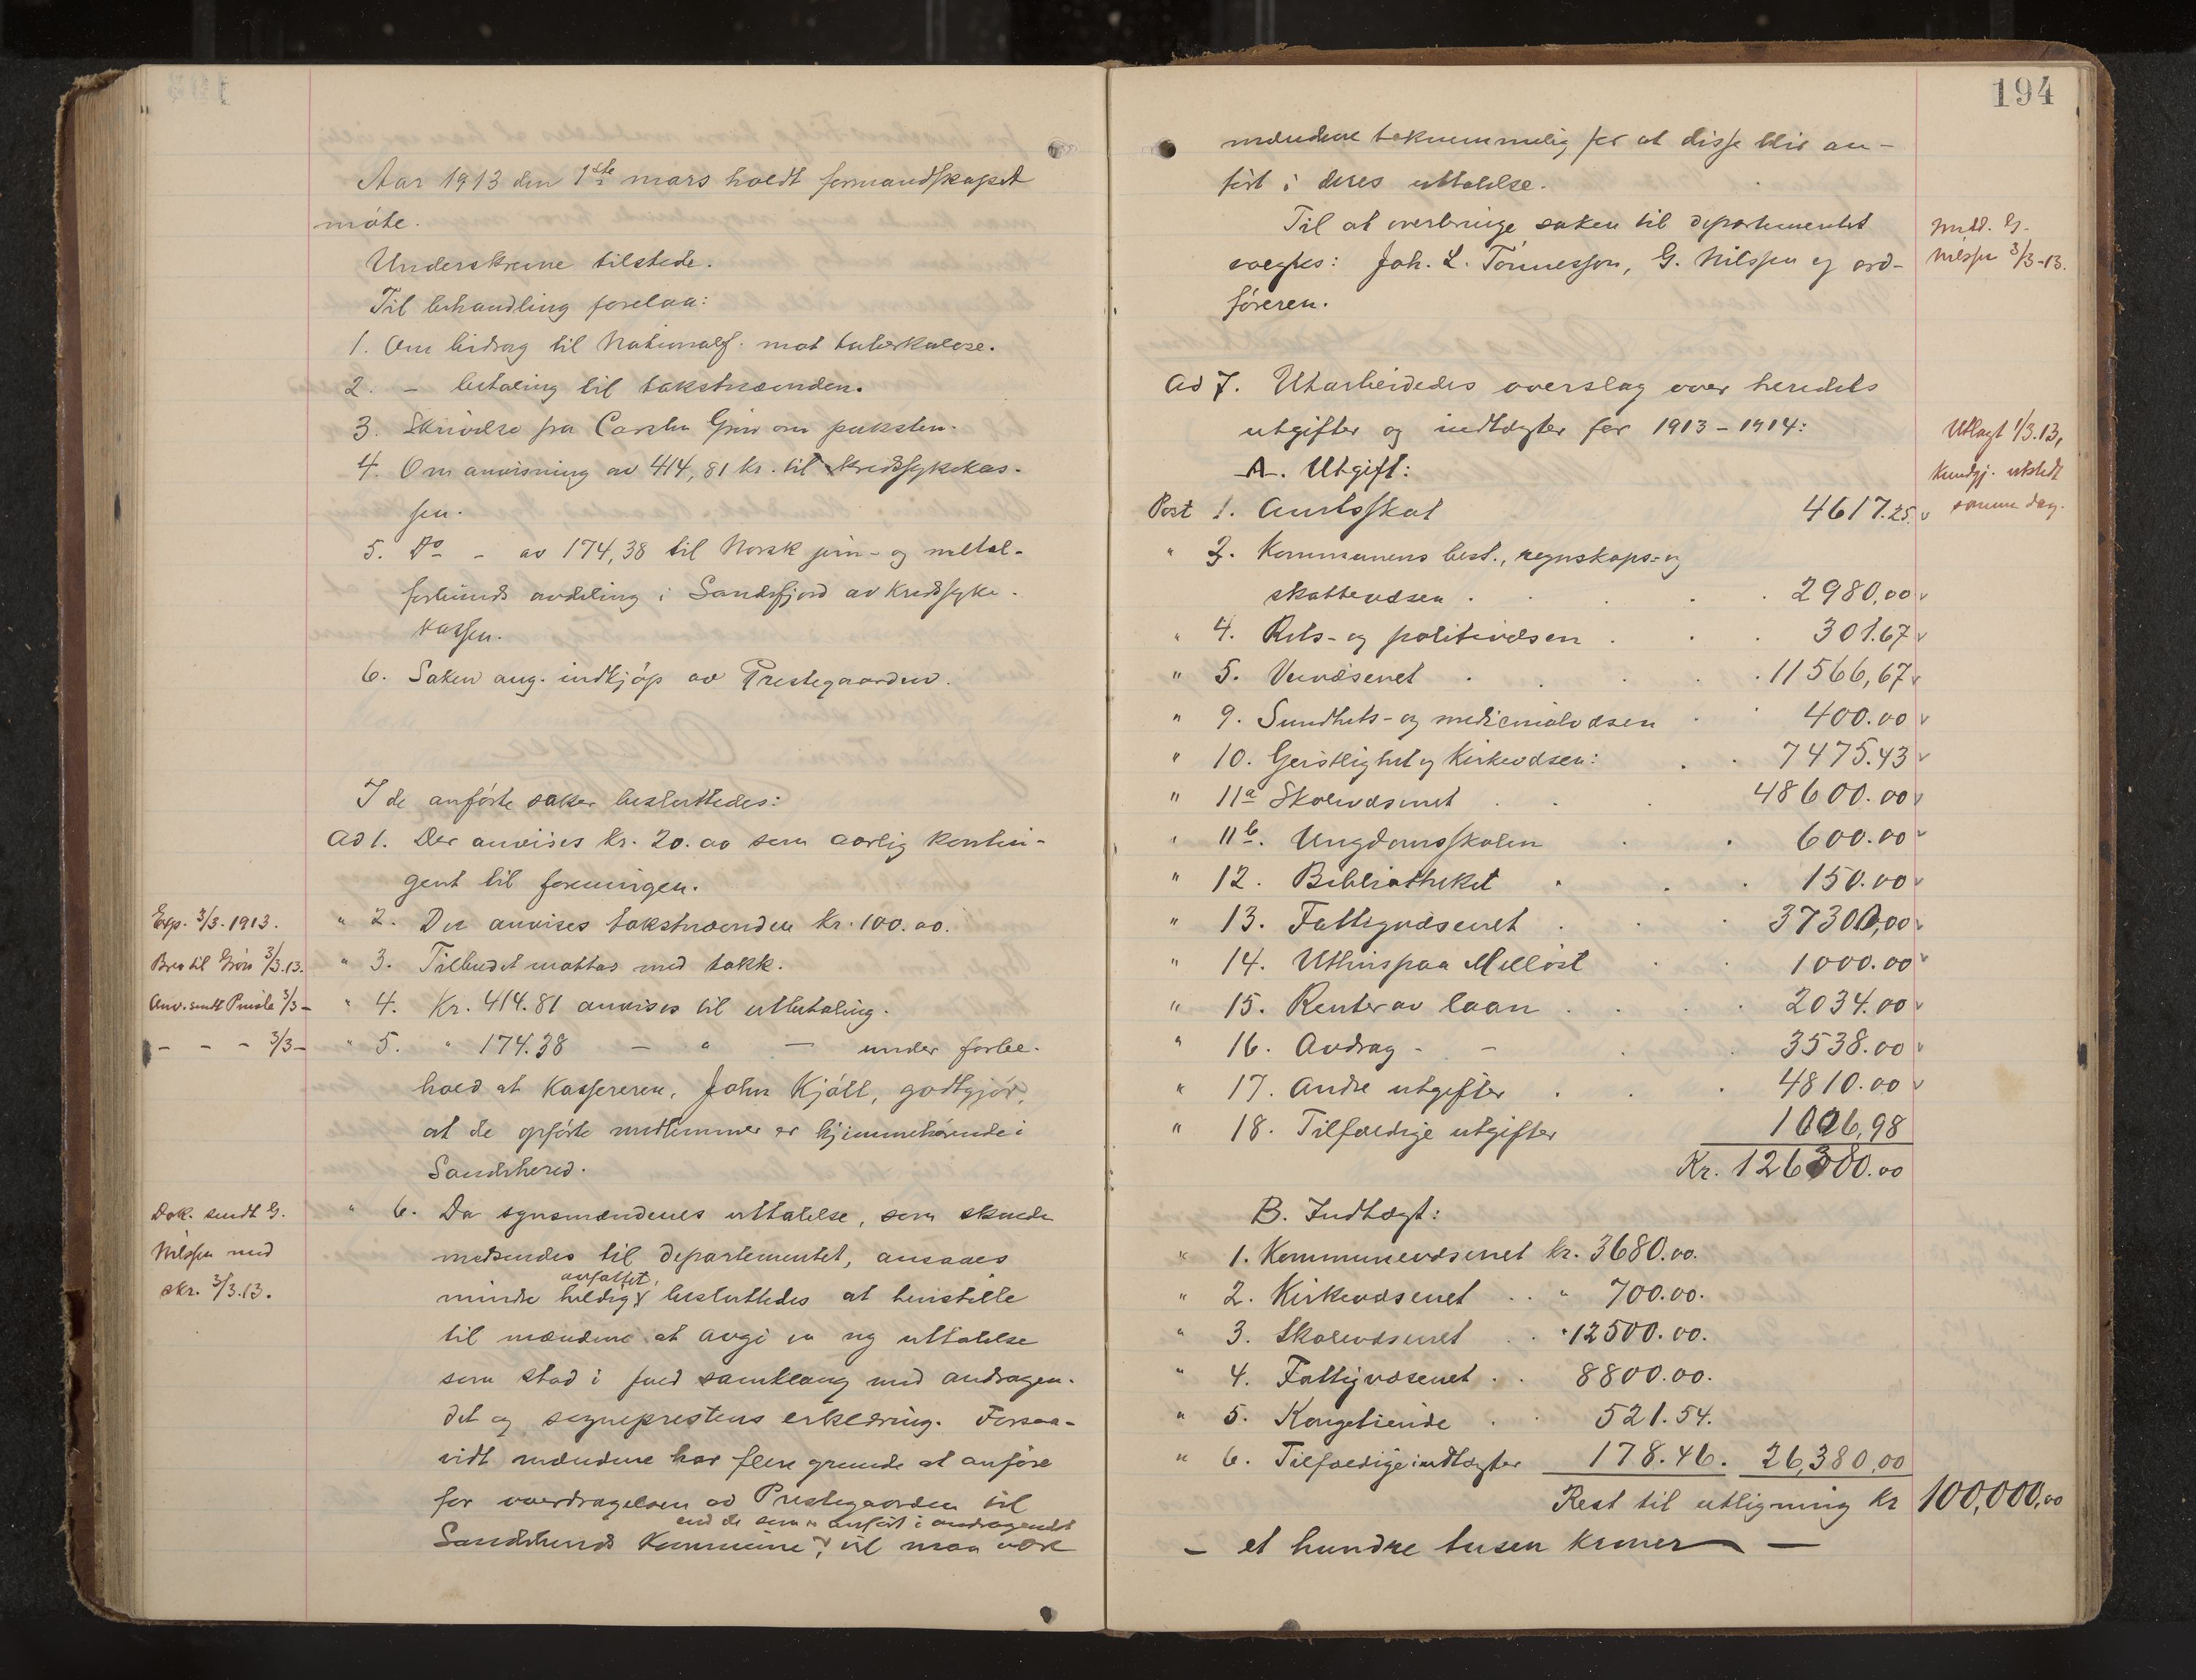 Aar 1913 den 1ste mars holdt formandskapet
møte.
Underskrevne tilstede.
Til behandling forelaa:
1. Om bidrag til Nationalf. mot tuberkulose.
2. - betaling til takstmænden.
3. Skrivelse fra Carsten Grøn om puksten.
4. Om anvisning av 414,81 kr. til kredssykekas-
sen.
5. Do - av 174,38 til Norsk jern- og metal-
forbunds avdeling i Sandefjord av Kredssyke-
kassen.
6. Saken ang. indkjøp av Prestegaarden.
I de anførte saker besluttedes:
Ad 1. Der anvises kr. 20.00 som aarlig kontin-
gent til foreningen.
Exp. 3/3. 1913.
" 2. Der anvises takstmænden kr. 100.00.
Brev til Grøn 3/3.13.
" 3. Tilbudet mottas med takk.
Anv. sendt 3/3 -
" 4. Kr. 414.81 anvises til utbetaling.
- - - 3/3 -
" 5. " 174.38 - " - under forbe-
hold at Kassereren, John Kjøll, godtgjør,
at de opførte medlemmer er hjemmehørende i
Sandeherred.
Dok. sendt G.
Nilssen med
skr. 3/3.13.
" 6. Da synsmændenes uttalelse, som skulde
medsendes til departementet, ansaaes
mindre heldig avfattet, besluttedes at henstille
til mændene at avgi en ny uttalelse
som stod i fuld samklang med andragen-
det og sogneprestens erklæring. Forsaa-
vidt mændene har flere grunde at anføre
for overdragelsen av Prestegaarden til
end de som er anført i andragendet
Sandeherreds Kommune, vil man være
194
mændene taknemmelig for at disse blir an-
ført i deres uttalelse.
Til at overbringe saken til departementet
vælgtes: Joh. L. Tønnesson, G. Nilssen og ord-
føreren.
Medd. G.
Nilssen 3/3-13.
Ad 7. Utarbeidedes overslag over herredets
utgifter og indtægter for 1913-1914:
Utlagt 1/3.13,
kundgj. utstedt
samme dag.
A. Utgift:
Post 1. Amtsskat 4617.25
" 3. Kommunens best., regnskaps- og
skattevæsen . . . . 2980,00
" 4. Rets- og politivæsen . . . 301.67
" 5. Veivæsenet . . . . 11566,67
" 9. Sundhets- og medicinalvæsen . . 400.00
" 10. Geistlighet og Kirkevæsen: . . 7475.43
" 11a Skolevæsenet . . . 48600.00
" 11b. Ungdomsskolen . . 600.00
" 12. Bibliotheket . . . 150.00
" 13. Fattigvæsenet . . . 37300,00
" 14. Uthuspaa Melløst . . 1000.00
" 15. Renter av laan . . . . 2034.00
" 16. Avdrag - - . . 3538.00
" 17. Andre utgifter . . . 4810.00
" 18. Tilfældige utgifter 1006,98
Kr. 126380.00
B. Indtægt:
" 1. Kommunevæsenet kr. 3680.00.
" 2. Kirkevæsenet . . " 700.00.
" 3. Skolevæsenet . . " 12500.00.
" 4. Fattigvæsenet . . 8800.00.
" 5. Kongetiende . . 521.54.
" 6. Tilfældige indtægter 178.46. 26,380,00
Rest til utligning kr 100,000,00
- et hundre tusen kroner -